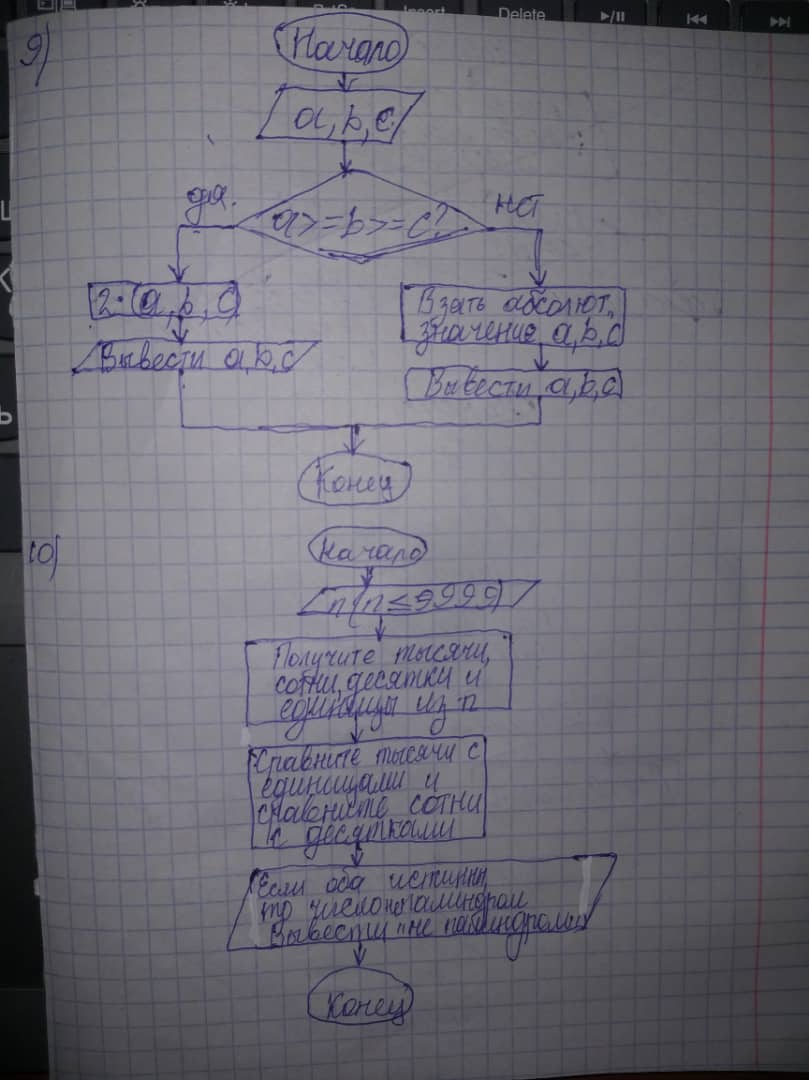 Delete
9)
Начало
a, b, c
да.
a>=b>=c?
нет
2·(a, b, c)
Взать абсолют.
значение a, b, c
Вывести a,b,c
Вывести a,b,c
Конец
10)
Начало
n (n ≤ 9999)
Получите тысячи,
сотни, десятки и
единицы из n
Сравните тысячи с
единицами и
сравните сотни
с десятками
Если оба истинны,
то число
Вывести "не палиндром"
Конец